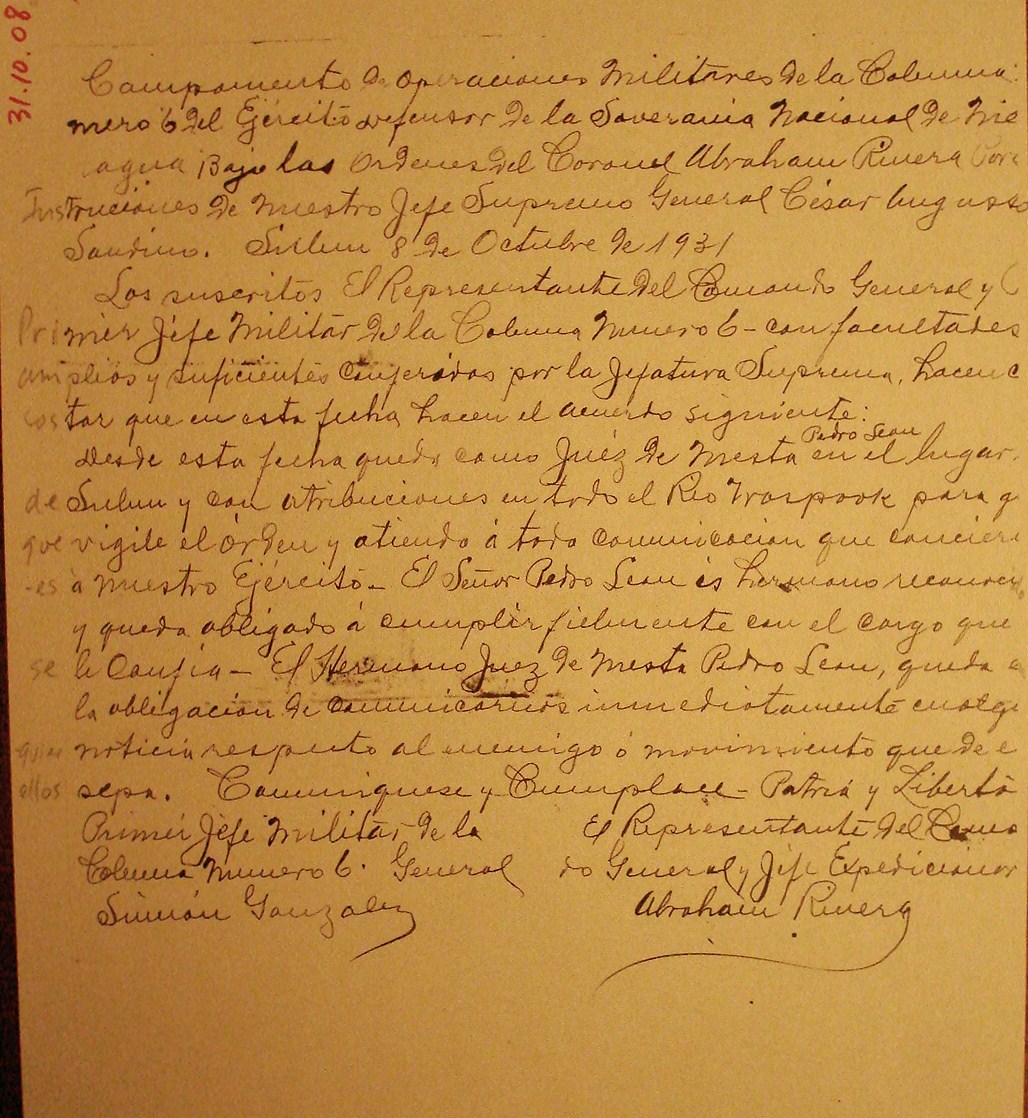 31.10.08
Campamento de operaciones Militares de la Columna
mero 6 del Ejército defensor de la Soverania Nacional de Nic
agua Bajo las Ordenes del Coronel Abraham Rivera Por
Instruciones de Nuestro Jefe Supremo General César Augusto
Sandino. Sulun 8 de Octubre de 1931
Los suscritos El Representante del Comando General y
Primer Jefe Militar de la Coluna Numero 6 - con facultades
amplios y suficientes conferidos por la Jefatura Suprema, hacen c
cos tar que en esta fecha hacen el acuerdo siguiente:
Pedro Lean
Desde esta fecha queda como Juéz de Mesta en el lugar
de Sulun y con atribuciones en todo el Rio Waspook para q
que vigile el órden y atienda á toda comunicacion que concier
-es á Nuestro Ejército - El Señor Pedro Lean es hermano reconoci
y queda obligado á cumplir fielmente con el cargo que
se le Confia - El Hermano Juez de Mesta Pedro Lean, queda
la obligación de comunicarnos inmediatamente cualqu
quier noticia respecto al enemigo ó movimiento que de e
ellos sepa. Comuniquese y Cumplace - Patria y Liberta
Primer Jefe Militar de la
Coluna Numero 6. General
Simón Gonzalez
El Representante del Coma
do General y Jefe Expedicionar
Abraham Rivera